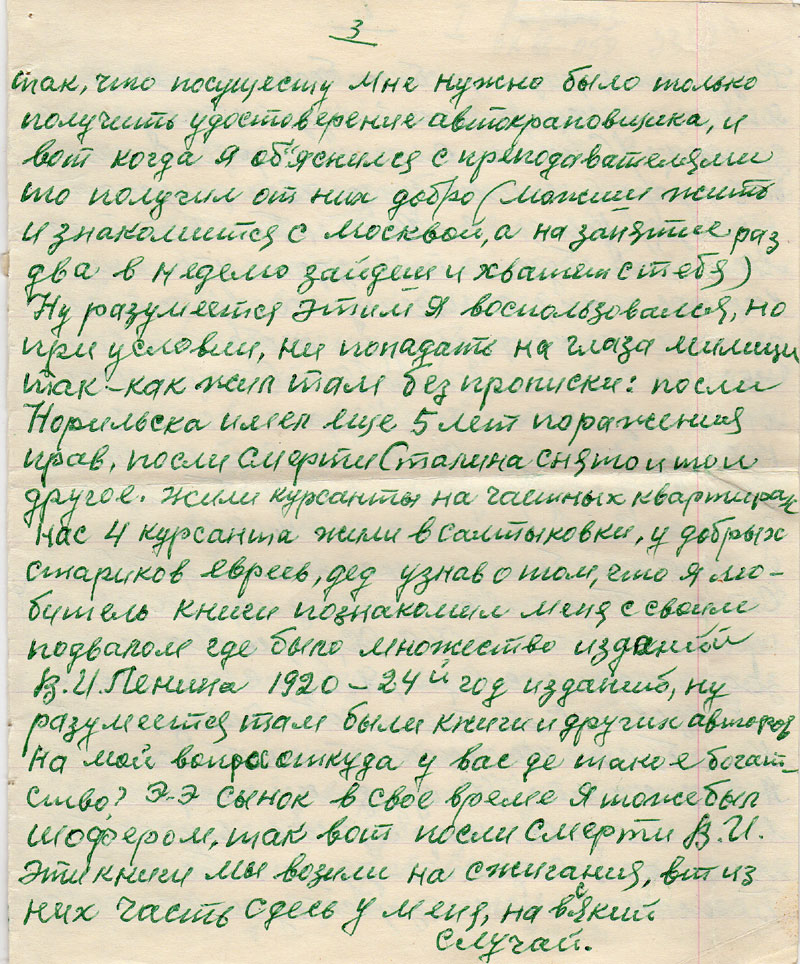 3
так, что посуществу мне нужно было только
получить удостоверение автокрановщика, и
вот когда я об"яснился с преподавателями
то получил от них добро (можеш жить
и знакомится с Москвой, а на занятие раз
два в неделю зайдеш и хватит с тебя)
Ну разумеется этим я воспользовался, но
при условии, ни попадать на глаза милиции
так-как жил там без прописки: посли
Норильска имел еще 5 лет поражения
прав, посли смерти Сталина снято и то и
другое. Жили курсанты на частных квартирах
нас 4 курсанта жили в Салтыковки, у добрых
стариков евреев, дед узнав о том, что я лю-
битель книги познакомил меня с своим
подвалом где было множество изданий
В.И.Ленина 1920-24й год издания, ну
разумеется там были книги и других авторов
На мой вопрос откуда у вас де такое богат-
ство? Э-Э сынок в свое время я тоже был
шофером, так вот посли смерти В.И.
эти книги мы возили на сжигания, вт из
них часть сдесь у меня, на всякий
случай.